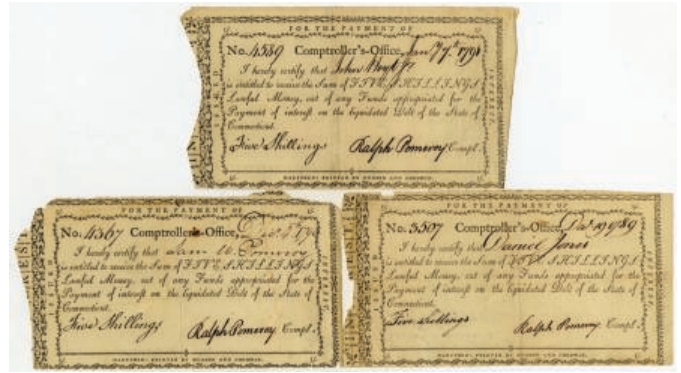 FOR THE PAYMENT OF
No. 4589 Comptroller's-Office, Jany 7th 1791
I hereby certify that John Hoyt Jr
is entitled to receive the Sum of FIVE SHILLINGS
Lawful Money, out of any Funds appropriated for the
Payment of interest on the liquidated Debt of the State of
Connecticut.
Five Shillings Ralph Pomeroy Compt.
HARTFORD: PRINTED BY HUDSON AND GOODWIN.
ISSUED
INTEREST
FOR THE PAYMENT OF
No. 4367 Comptroller's-Office,
I hereby certify that Sam W. Pomeroy
is entitled to receive the Sum of FIVE SHILLINGS
Lawful Money, out of any Funds appropriated for the
Payment of interest on the liquidated Debt of the State of
Connecticut.
Five Shillings Ralph Pomeroy Compt.
HARTFORD: PRINTED BY HUDSON AND GOODWIN.
ISSUED
FOR THE PAYMENT OF
No. 3507 Comptroller's-Office, 1789
I hereby certify that Daniel Jones
is entitled to receive the Sum of FIVE SHILLINGS
Lawful Money, out of any Funds appropriated for the
Payment of interest on the liquidated Debt of the State of
Connecticut.
Five Shillings Ralph Pomeroy Compt.
HARTFORD: PRINTED BY HUDSON AND GOODWIN.
ISSUED
INTEREST